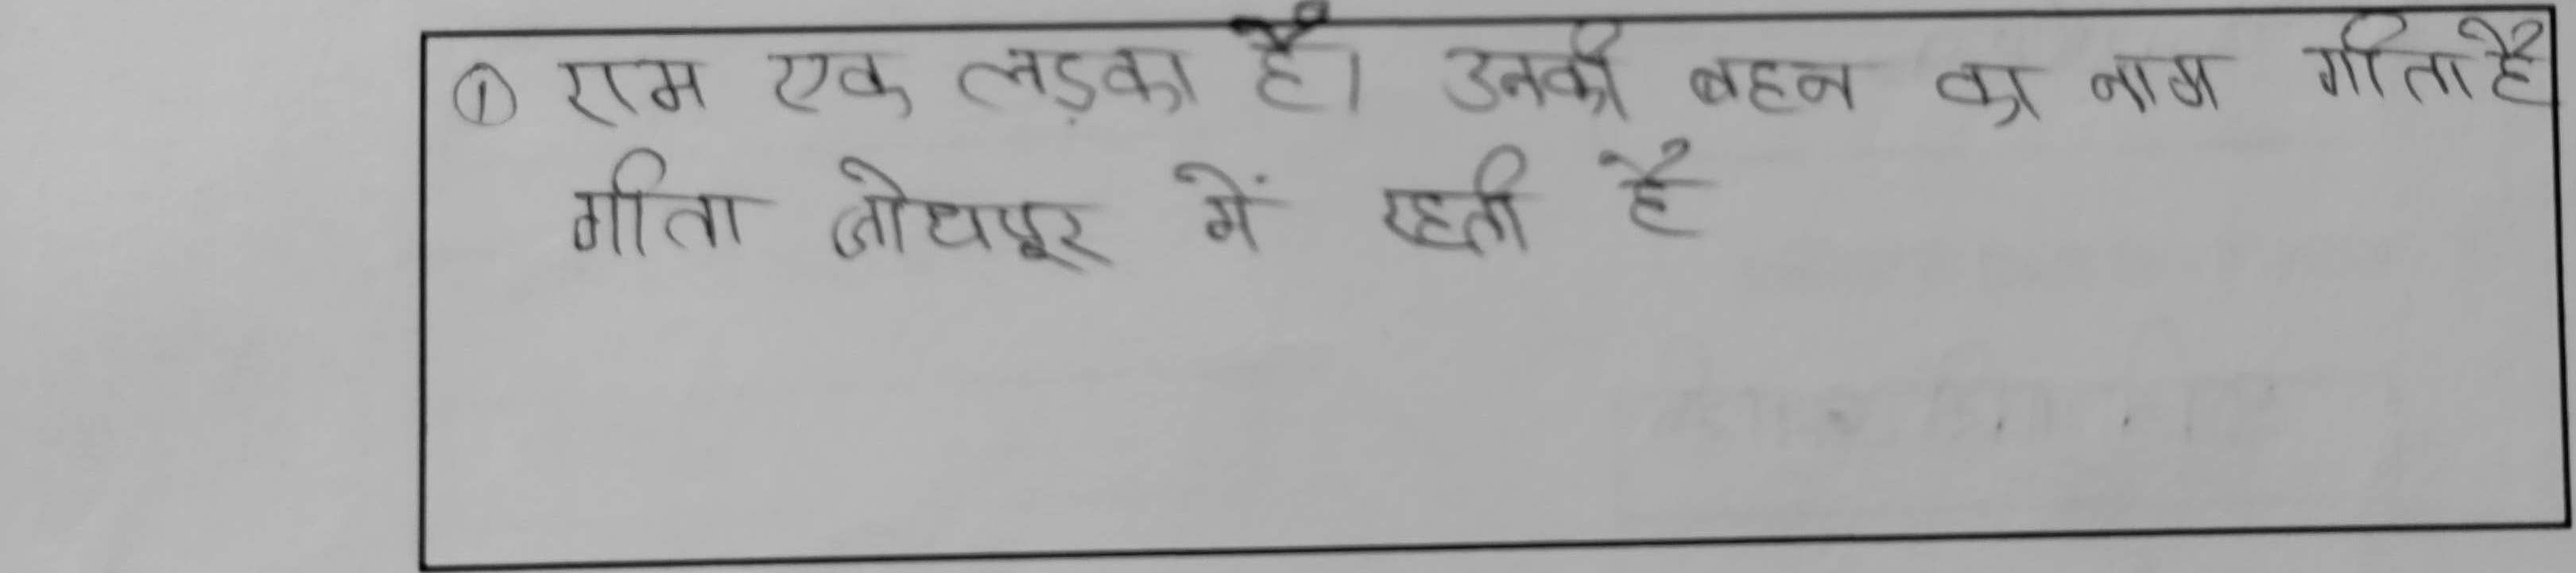 ① राम एक लड़का है। उनकी बहन का नाम गीता है
गीता जोधपूर में रहती है